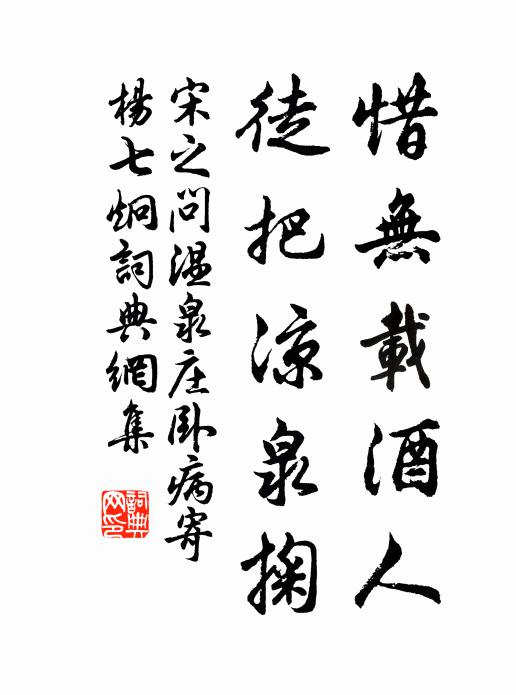 惜無載酒人
徒把涼泉掬
宋之問溫泉庄臥病寄
楊七炯詞典網集
詞典
网印